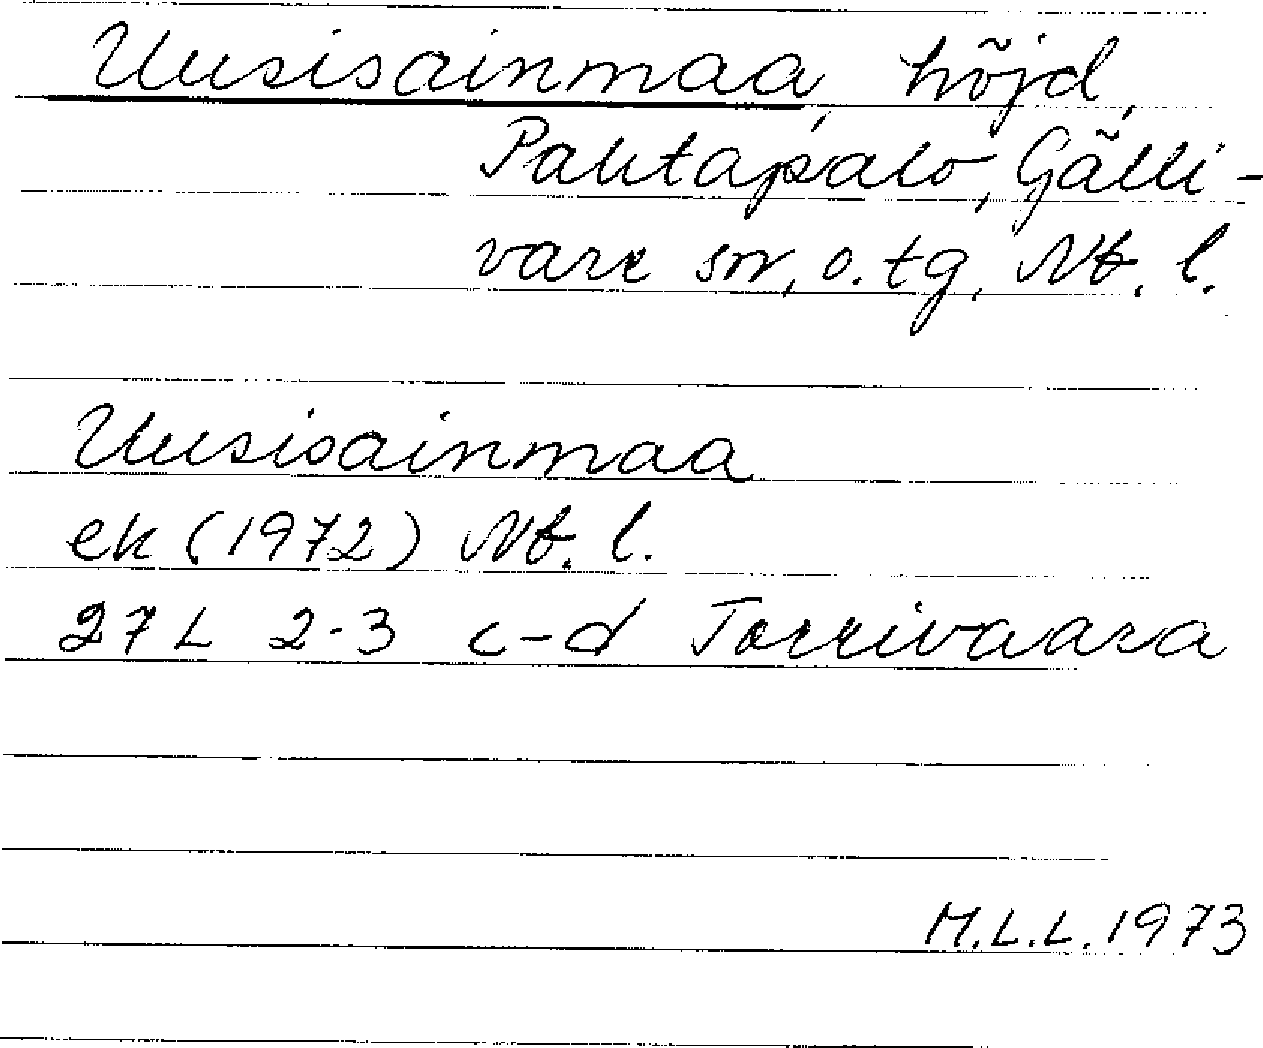 Uusisainmaa, höjd,
Pahtapalo, Gälli-
vare sn, o. tg, Nb. l.
Uusisainmaa
ek (1972) Nb. l.
27 L 2-3 c-d Torrivaara
M.L.L. 1973